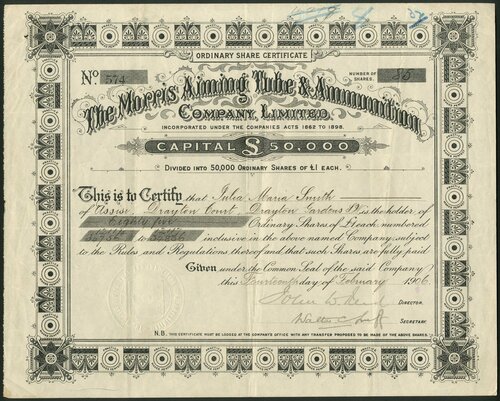 ORDINARY SHARE CERTIFICATE
No 574
NUMBER OF SHARES 85
The Morris Aiming Tube & Ammunition
COMPANY, LIMITED.
INCORPORATED UNDER THE COMPANIES ACTS 1862 TO 1898.
CAPITAL £50,000
DIVIDED INTO 50,000 ORDINARY SHARES OF £1 EACH.
This is to Certify that Julia Maria Smyth
of Drayton Court, Drayton Gardens SW is the holder of
Eighty five Ordinary Shares of £1 each numbered
to inclusive in the above named Company subject
to the Rules and Regulations thereof and that such Shares are fully paid
Given under the Common Seal of the said Company
this Fourteenth day of February 1906
DIRECTOR.
SECRETARY.
N.B. THIS CERTIFICATE MUST BE LODGED AT THE COMPANY'S OFFICE WITH ANY TRANSFER PROPOSED TO BE MADE OF THE ABOVE SHARES.